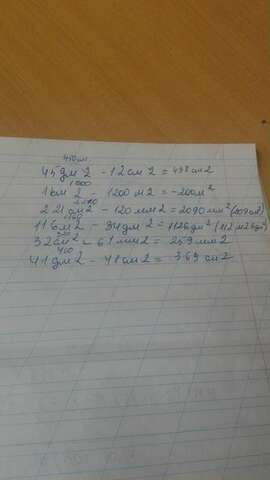 450см
45дм2 - 12см2 = 438см2
1000
1км2 - 1200м2 = -200м²
2210
221см2 - 120мм2 = 2090мм² (209см²)
1160
116м2 - 34дм2 = 1126дм² (112м26дм²)
320
32см2 - 61мм2 = 259мм2
410
41дм2 - 41см2 = 369см2